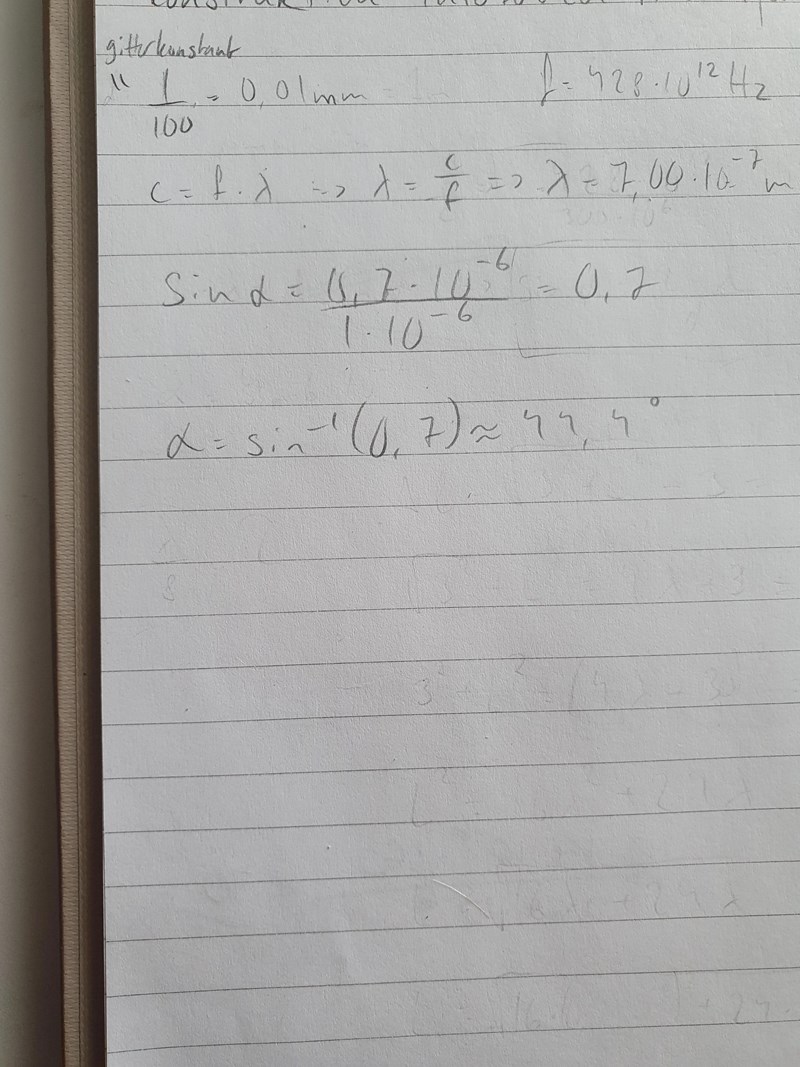 gitterkonstant
" 1/100 = 0,01mm f = 428·10^12 Hz
c = f·λ => λ = c/f => λ = 7,00·10^-7 m
sin α = 0,7·10^-6 / 1·10^-6 = 0,7
α = sin^-1(0,7) ≈ 44,4°